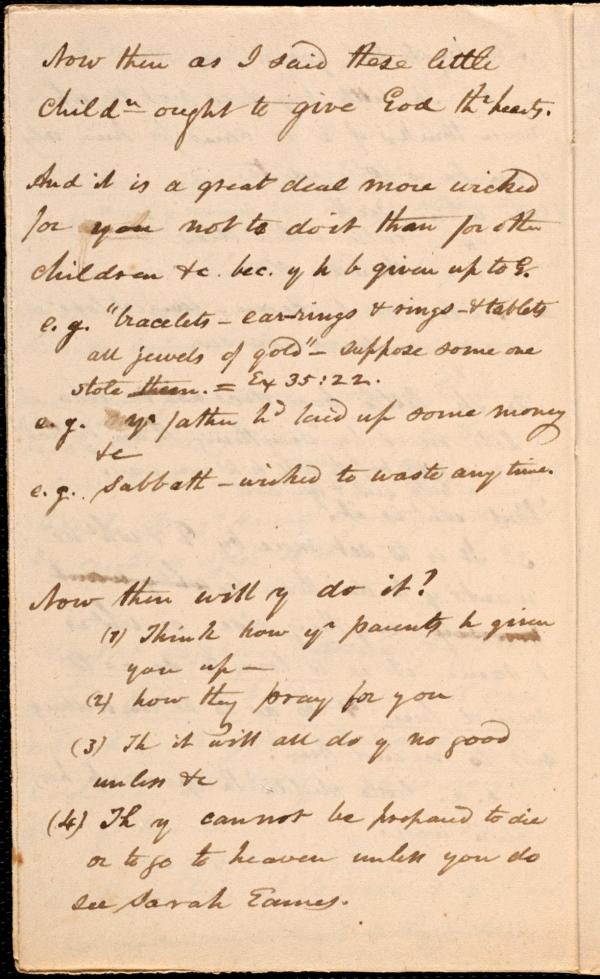 Now then as I said these little
childn ought to give God thr hearts.
And it is a great deal more wicked
for you not to do it than for other
children &c. bec. y h b given up to G.
e.g. "bracelets - ear-rings & rings - & tablets
all jewels of gold" - suppose some one
stole them. = Ex 35:22.
e.g. yr father hd laid up some money
&c
e.g. Sabbath - wicked to waste any time.
Now then will y do it?
(1) Think how yr parents h given
you up -
(2) how they pray for you
(3) Th it will all do y no good
unless &c
(4) Th y cannot be prepared to die
or to go to heaven unless you do
see Sarah Eames.